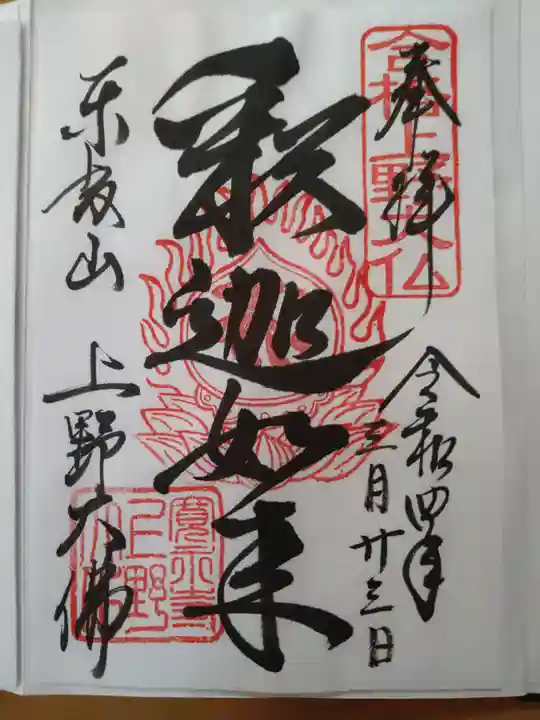 奉拝
合格上野大仏
令和四年
三月廿三日
釈迦如来
東叡山 上野大佛
寛永寺
上野